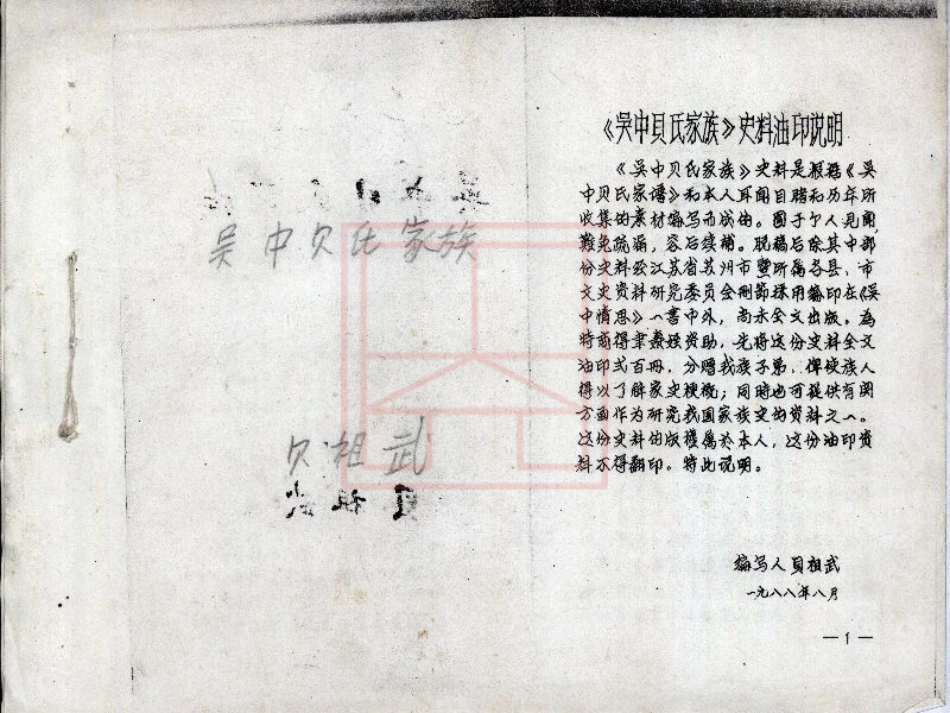 吴中贝氏家族
贝祖武
《吳中貝氏家族》史料油印说明
《吴中贝氏家族》史料是根据《吴
中贝氏家谱》和本人耳闻目睹和历年所
收集的素材编写而成的。囿于个人见闻,
难免疏漏,容后续補。脱稿后除其中部
份史料经江苏省苏州市暨所属各县、市
文史资料研究委员会删節採用编印在《吴
中情思》一書中外,尚未全文出版。為
特商得聿燾姪资助,先将这份史料全文
油印弍百冊,分贈我族子弟,俾使族人
得以了解家史梗概;同時也可提供有関
方面作为研究我国家族史的资料之一。
这份史料的版權属於本人,这份油印资
料不得翻印。特此说明。
编写人貝祖武
一九八八年八月
—1—